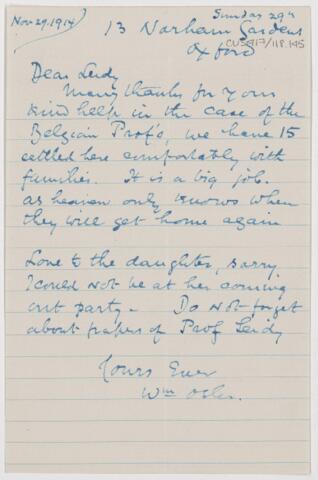 Sunday 29th
(Nov 29. 1914)
13 Norham Gardens
Oxford
CUS417/118.145
Dear Leidy
Many thanks for your
kind help in the case of the
Belgian Profs, we have 15
settled here comfortably with
families. It is a big job.
as heaven only knows when
they will get home again
Love to the daughter, sorry
I could not be at her coming
out party - Do not forget
about papers of Prof Leidy
Yours Ever
Wm Osler.